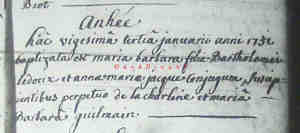 Biot
Anhée
hac vigesima tertia januarii anni 1751
baptizata est maria barbara filia Bartholomei
ledoux et anna maria jacque conjugum, susce
pientibus perpetuo de la charline et maria
Barbara guilmain